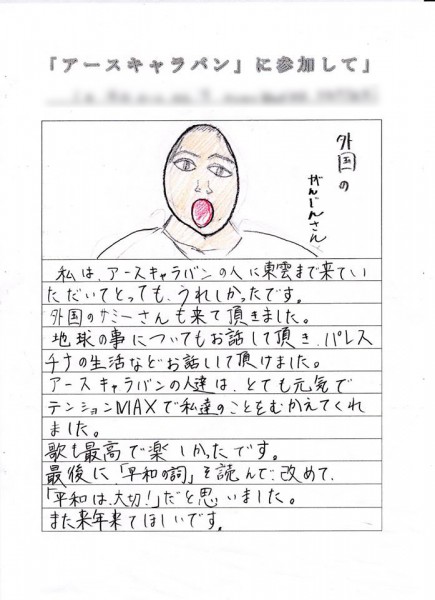 「アースキャラバン」に参加して」
外国の
がんじんさん
私は、アースキャラバンの人に東雲まで来てい
ただいてとっても、うれしかったです。
外国のサミーさんも来て頂きました。
地球の事についてもお話して頂き、パレス
チナの生活などお話しして頂けました。
アースキャラバンの人達は、とても元気で
テンションMAXで私達のことをむかえてくれ
ました。
歌も最高で楽しかったです。
最後に「平和の詞」を読んで、改めて、
「平和は、大切!」だと思いました。
また来年来てほしいです。